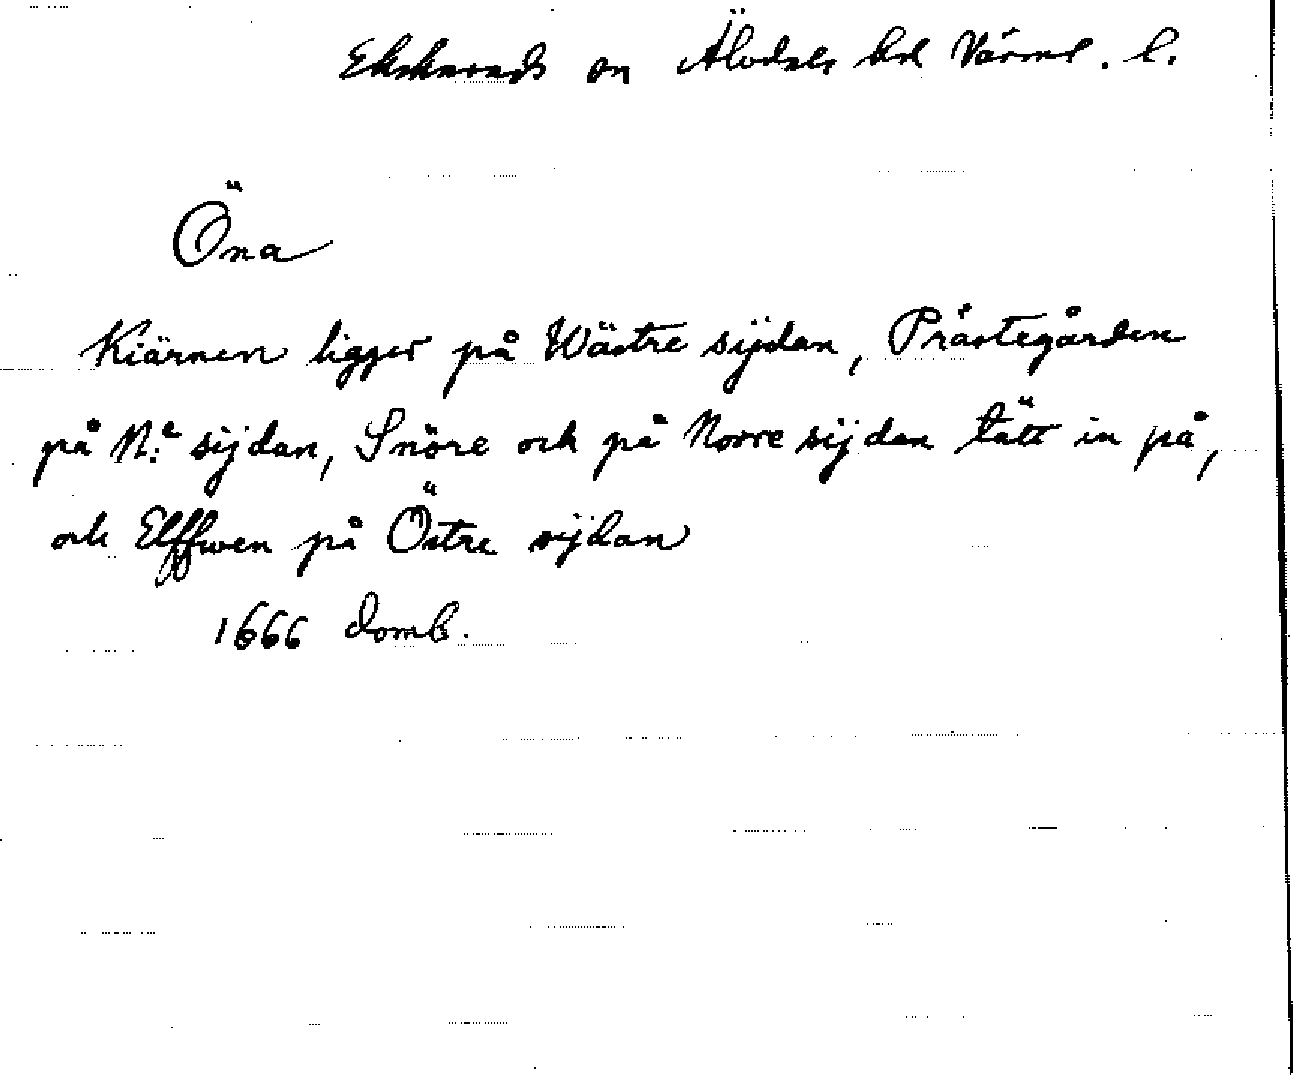 Ekshärads sn Älvdals hd Värml. l.
Öna
Kiärnen ligger på Wästre sijdan, Prästegården
på N:e sijdan, Snöre och på Norre sijdan tätt in på,
och Elffwen på Östre sijdan
1666 Domb.